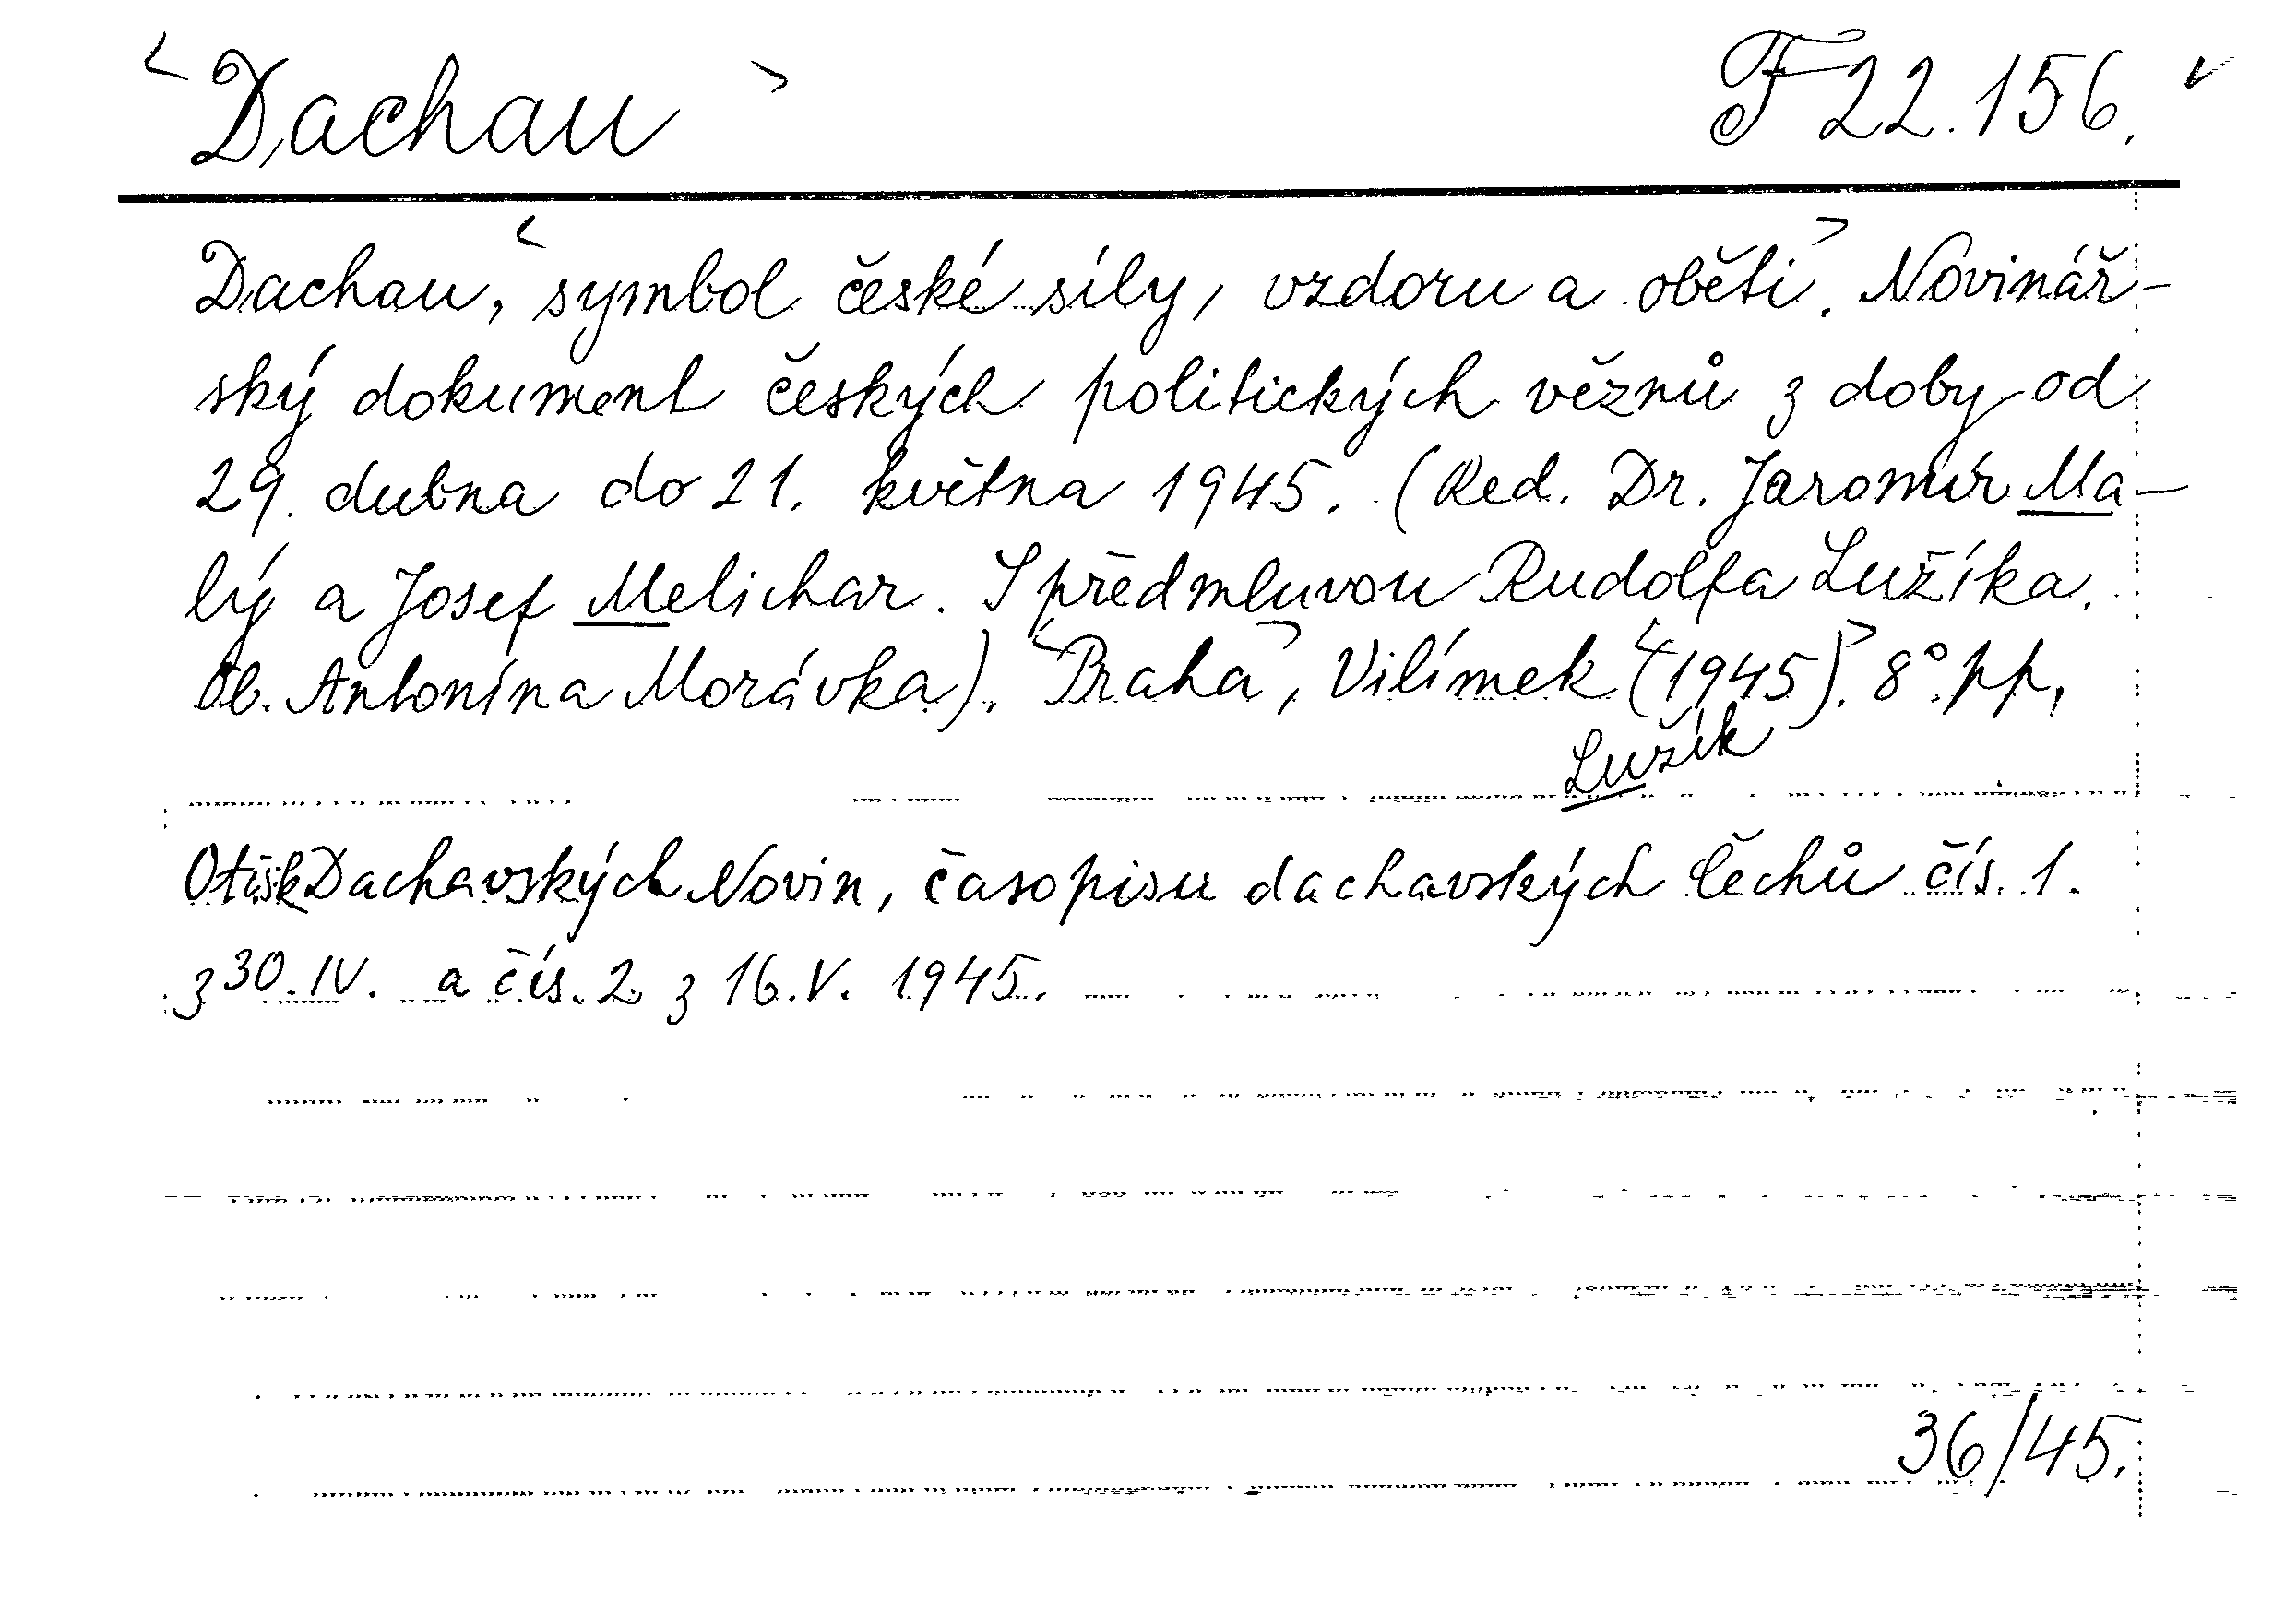 <Dachau> F 22.156.
Dachau, <symbol české síly, vzdoru a oběti>. Novinář-
ský dokument českých politických vězňů z doby od
29. dubna do 21. května 1945. (Red. Dr. Jaromír Ma-
lý a Josef Melichar. S předmluvou Rudolfa Lužíka.
Ob. Antonína Morávka). <Praha>, Vilímek <(1945)>. 8°. pp,
Lužík
Otisk Dachavských Novin, časopisu dachavských Čechů čís. 1.
z 30. IV. a čís. 2 z 16. V. 1945.
36/45.